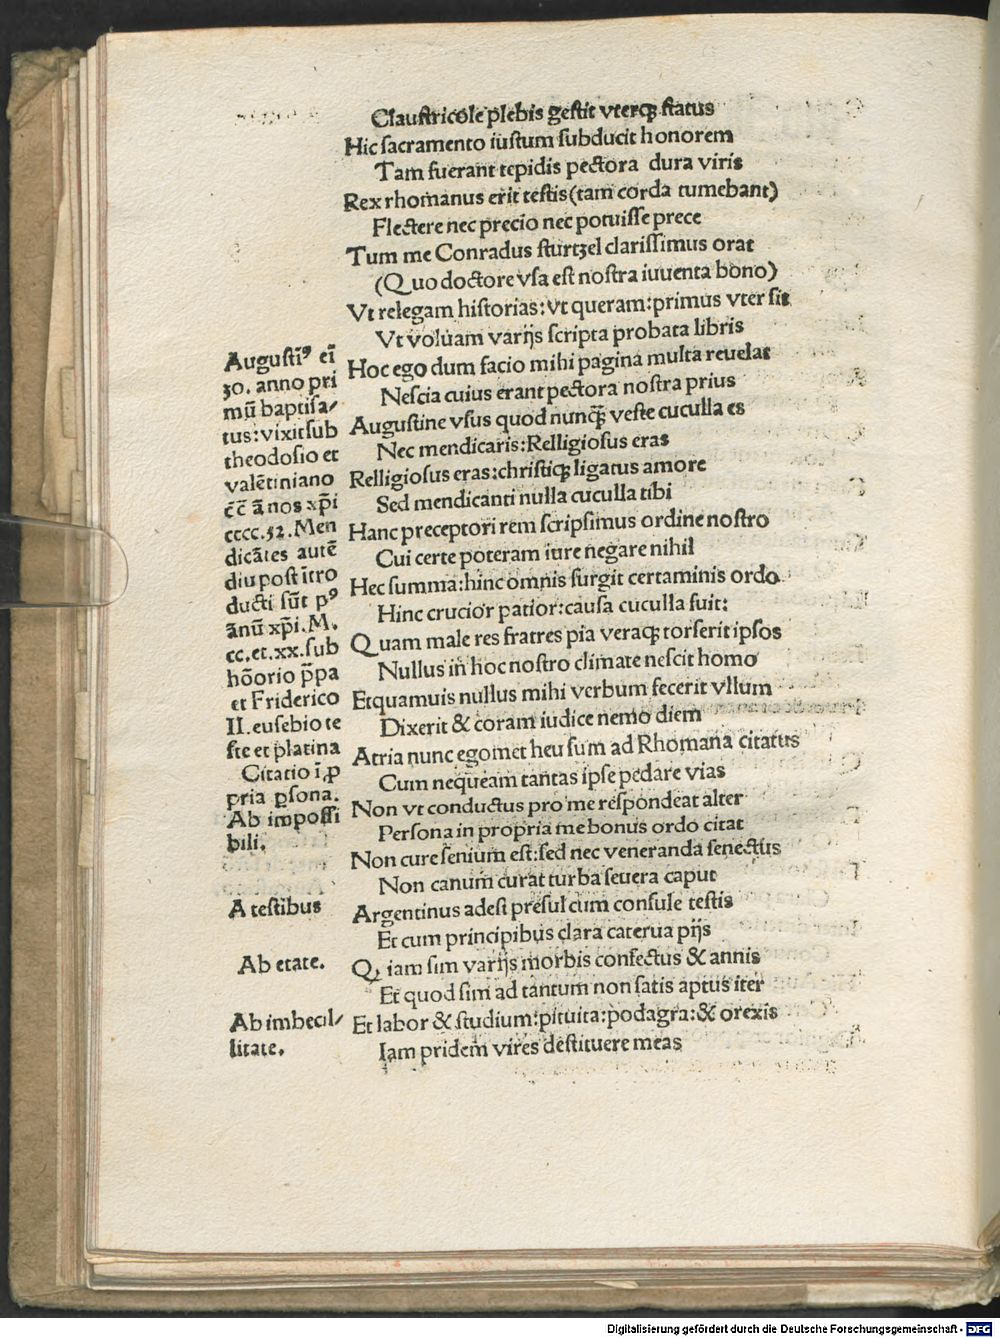 Clauſtricole plebis geſtit vterqꝫ ſtatus
Hic ſacramento iuſtum ſubducit honorem
Tam fuerant tepidis pectora dura viris
Rex rhomanus erit teſtis (tam corda tumebant)
Flectere nec precio nec potuiſſe prece
Tum me Conradus ſturtzel clariſſimus orat
(Quo doctore vſa eſt noſtra iuuenta bono)
Vt relegam hiſtorias: vt queram: primus vter ſit
Vt voluam varijs ſcripta probata libris
Hoc ego dum facio mihi pagina multa reuelat
Neſcia cuius erant pectora noſtra prius
Auguſtine vſus quod nunqꝫ̃ veſte cuculla es
Nec mendicaris: Relligioſus eras
Relligioſus eras: chriſtiqꝫ ligatus amore
Sed mendicanti nulla cuculla tibi
Hanc preceptori rem ſcripſimus ordine noſtro
Cui certe poteram iure negare nihil
Hec ſumma: hinc omnis ſurgit certaminis ordo
Hinc crucior patior: cauſa cuculla fuit:
Quam male res fratres pia veraqꝫ torſerit ipſos
Nullus in hoc noſtro climate neſcit homo
Etquamuis nullus mihi verbum fecerit vllum
Dixerit & coram iudice nemo diem
Atria nunc egomet heu ſum ad Rhomana citatus
Cum nequeam tantas ipſe pedare vias
Non vt conductus pro me reſpondeat alter
Perſona in propria me bonus ordo citat
Non cure ſenium eſt: ſed nec veneranda ſenectus
Non canum curat turba ſeuera caput
Argentinus adeſt preſul cum conſule teſtis
Et cum principibus clara caterua pijs
Qꝫ iam ſim varijs morbis confectus & annis
Et quod ſim ad tantum non ſatis aptus iter
Et labor & ſtudium: pituita: podagra: & orexis
Iam pridem vires deſtituere meas
Auguſtiꝰ eĩ
30. anno pri
mũ baptiſa/
tus: vixit ſub
theodoſio et
valẽtiniano
c̃c̃ ãnos xp̃i
cccc.32. Men
dicãtes autẽ
diu poſt ĩtro
ducti ſũt pꝰ
ãnũ xp̃i. M.
cc.et.xx.ſub
hõorio pp̃a
et Friderico
II. euſebio te
ſte et platina
Citatio ĩ ꝓ
pria ꝑſona.
Ab impoſſi
bili.
A teſtibus
Ab etate.
Ab imbecil/
litate.
Digitalisierung gefördert durch die Deutsche Forschungsgemeinschaft - DFG